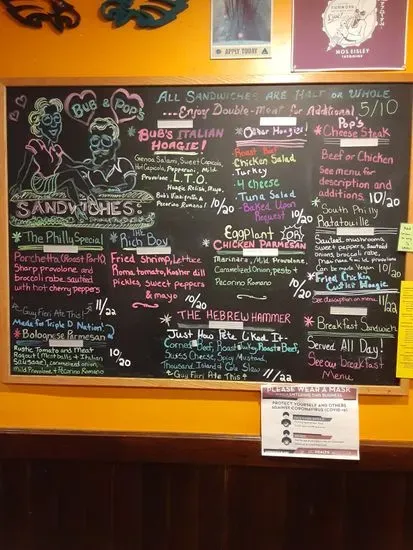 APPLY TODAY
MOS EISLEY
All Sandwiches are Half or Whole
Enjoy Double-Meat for Additional 5/10
Bub & Pop's
SANDWICHES:
Bub's Italian
Hoagie!
Genoa Salami, Sweet Capicola,
Hot Capicola, Pepperoni, Mild
Provolone L.T.O.
Hoagie Relish, Mayo,
Pecorino Romano!
10/20
Other Hoagies!
Roast Beef
Chicken Salad
Turkey
4 Cheese
Tuna Salad
-Baked Upon
Request 10/20
Pop's
Cheese Steak
Beef or Chicken
See menu for
description and
additions 10/20
South Philly
Ratatouille
Sauteed mushrooms,
sweet peppers, sauteed
onions, broccoli rabe,
Can be made Vegan 10/20
Fried Chicken
Cutlet Hoagie
See description on menu 11/22
Breakfast Sandwich
Served All Day!
See our breakfast
Menu
Eggplant (or)
Chicken Parmesan
Marinara, Mild Provolone
Caramelized Onion, pesto +
Pecorino Romano
10/20
The Philly Special
Porchetta (Roast Pork)
Sharp provolone and
broccoli rabe, sauteed
with hot cherry peppers
11/22
Guy Fieri Ate This!
The
Rich Boy
Fried shrimp, Lettuce
Roma tomato, Kosher dill
pickles, sweet peppers
& mayo
10/20
Made for Triple D Nation'
Bolognese Parmesan
Rustic Tomato and Meat
Ragout (Meatballs + Italian
Sausage), caramelized onion,
mild Provolone + Pecorino Romano
10/20
THE HEBREW HAMMER
Just How Pete Liked It.
Corned Beef, Roast Turkey, Roast Beef,
Swiss Cheese, Spicy Mustard,
Thousand Island & Cole Slaw
Guy Fieri Ate This 11/22
PLEASE WEAR A MASK
WHEN ENTERING THIS BUSINESS
PROTECT YOURSELF AND OTHERS
AGAINST CORONAVIRUS (COVID-19)
HEALTH